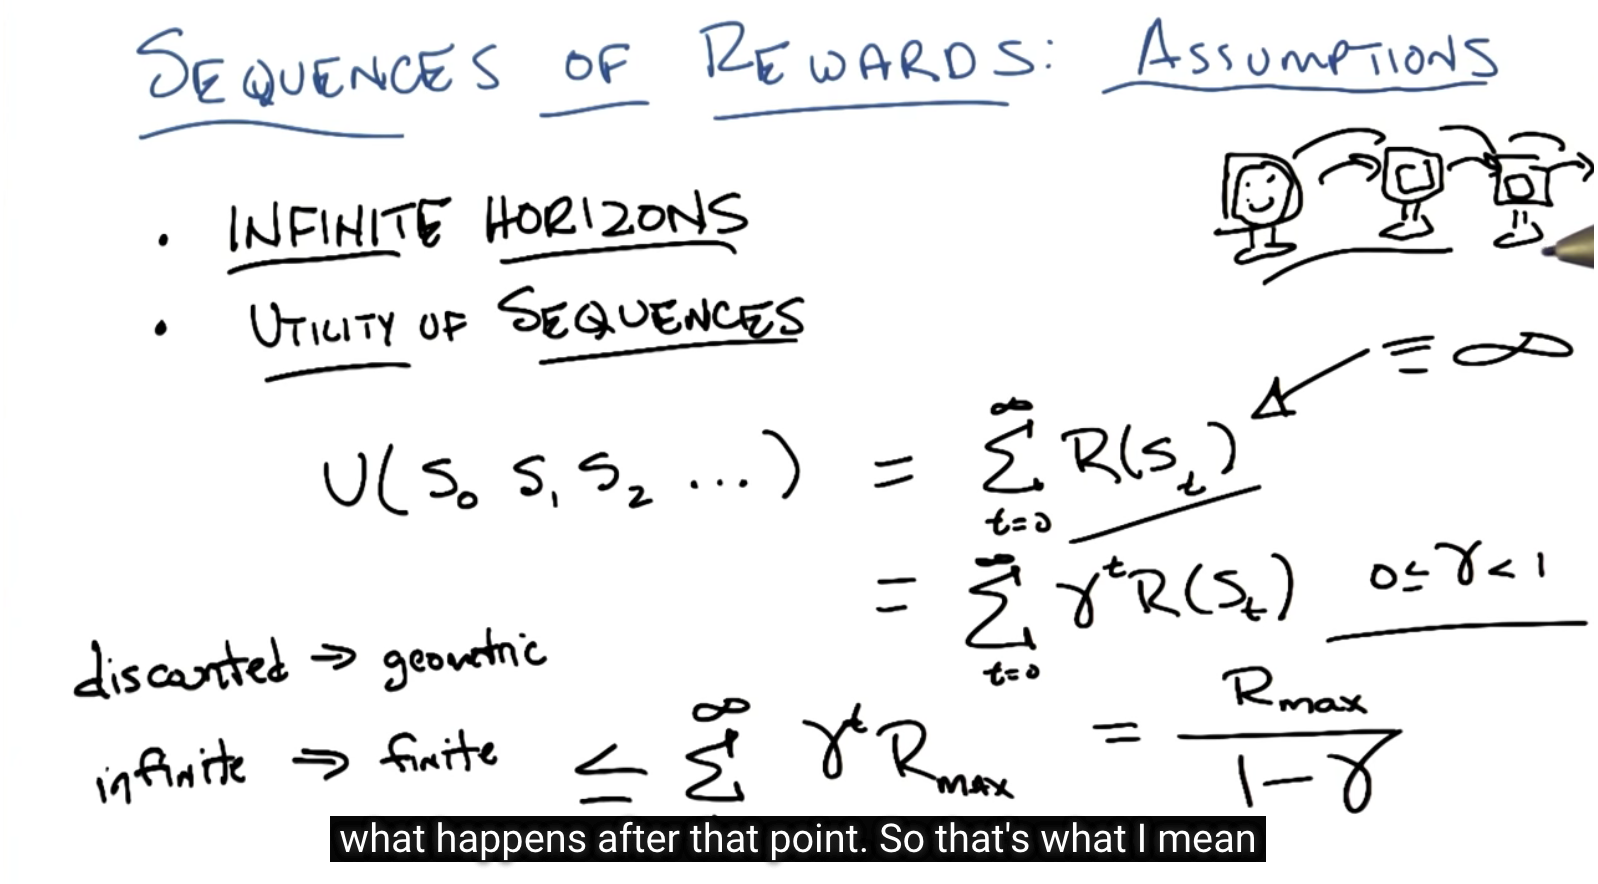 SEQUENCES OF REWARDS: ASSUMPTIONS
• INFINITE HORIZONS
• UTILITY OF SEQUENCES
= ∞
U(S₀ S₁ S₂ ...) = ∞ Σ t=0 R(Sₜ)
= ∞ Σ t=0 γᵗR(Sₜ) 0≤γ<1
discounted ⇒ geometric
infinite ⇒ finite ≤ ∞ Σ γᵗ Rmax = Rmax / 1-γ
what happens after that point. So that's what I mean